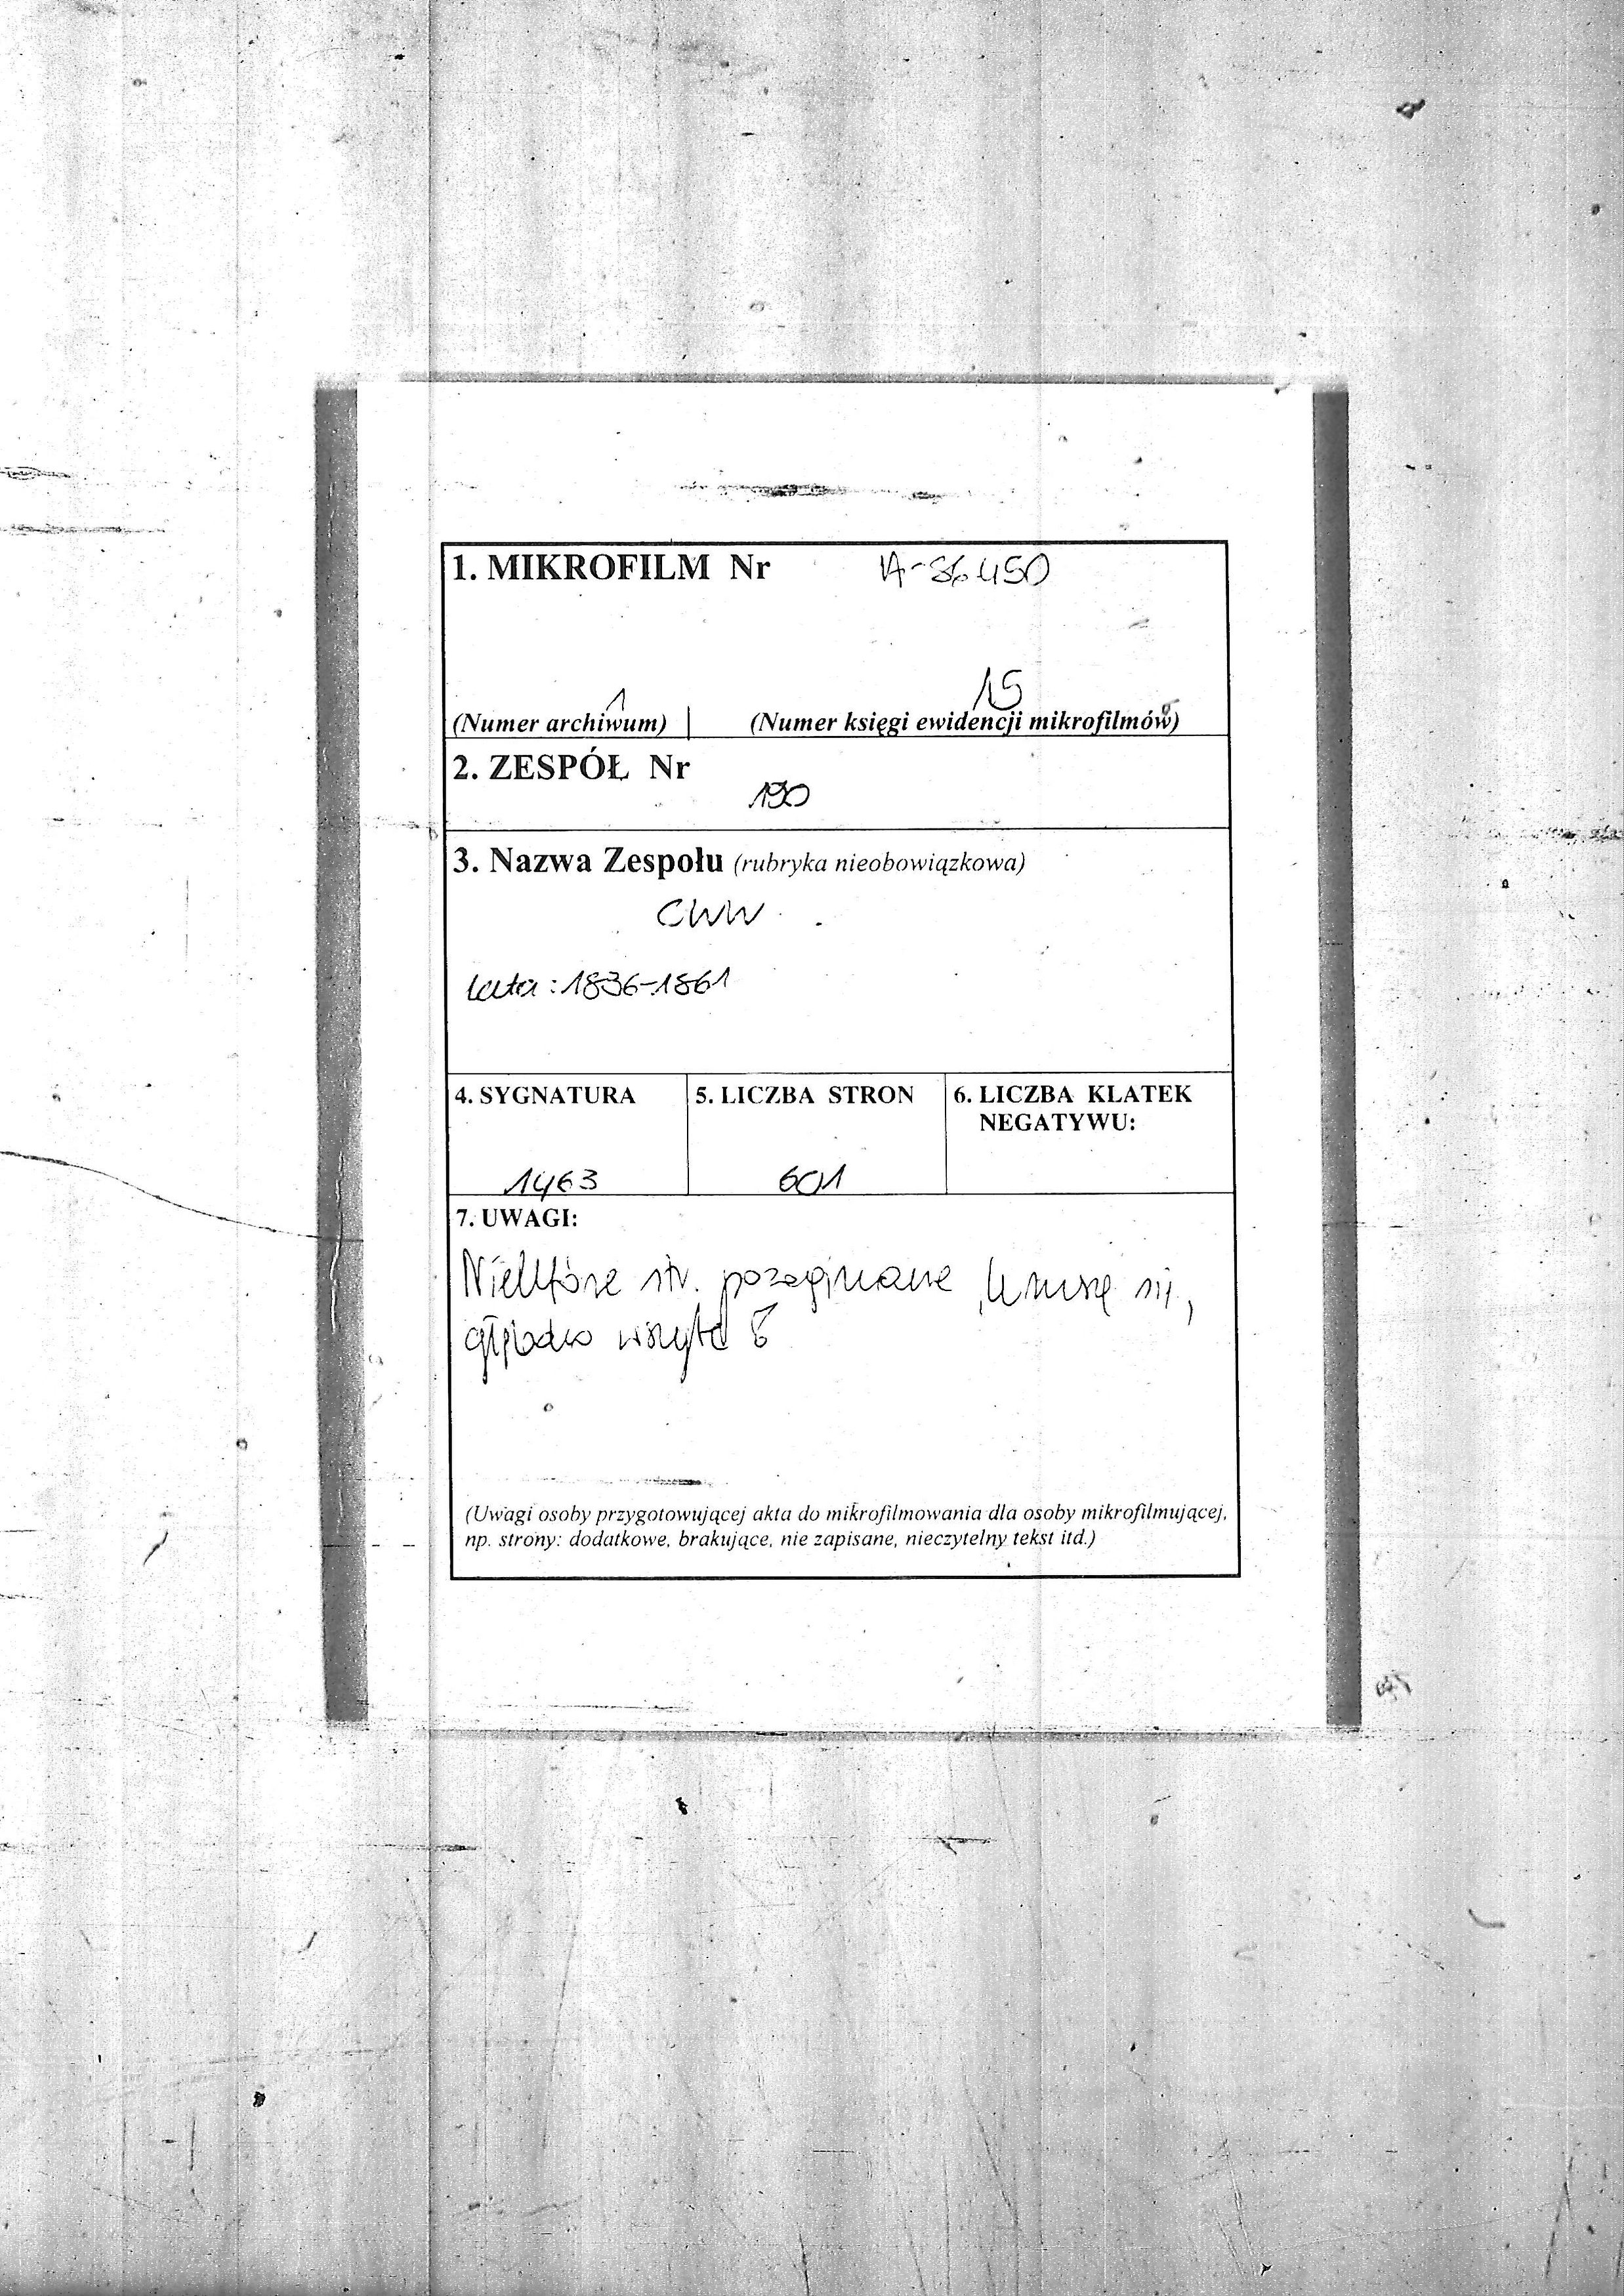 1. MIKROFILM Nr A-86450
1 15
(Numer archiwum) (Numer księgi ewidencji mikrofilmów)
2. ZESPÓŁ Nr
190
3. Nazwa Zespołu (rubryka nieobowiązkowa)
CWW
lata: 1836-1861
4. SYGNATURA 5. LICZBA STRON 6. LICZBA KLATEK
NEGATYWU:
1463 601
7. UWAGI:
Niektóre str. pozaginane, kruszą się,
(Uwagi osoby przygotowującej akta do mikrofilmowania dla osoby mikrofilmującej,
np. strony: dodatkowe, brakujące, nie zapisane, nieczytelny tekst itd.)